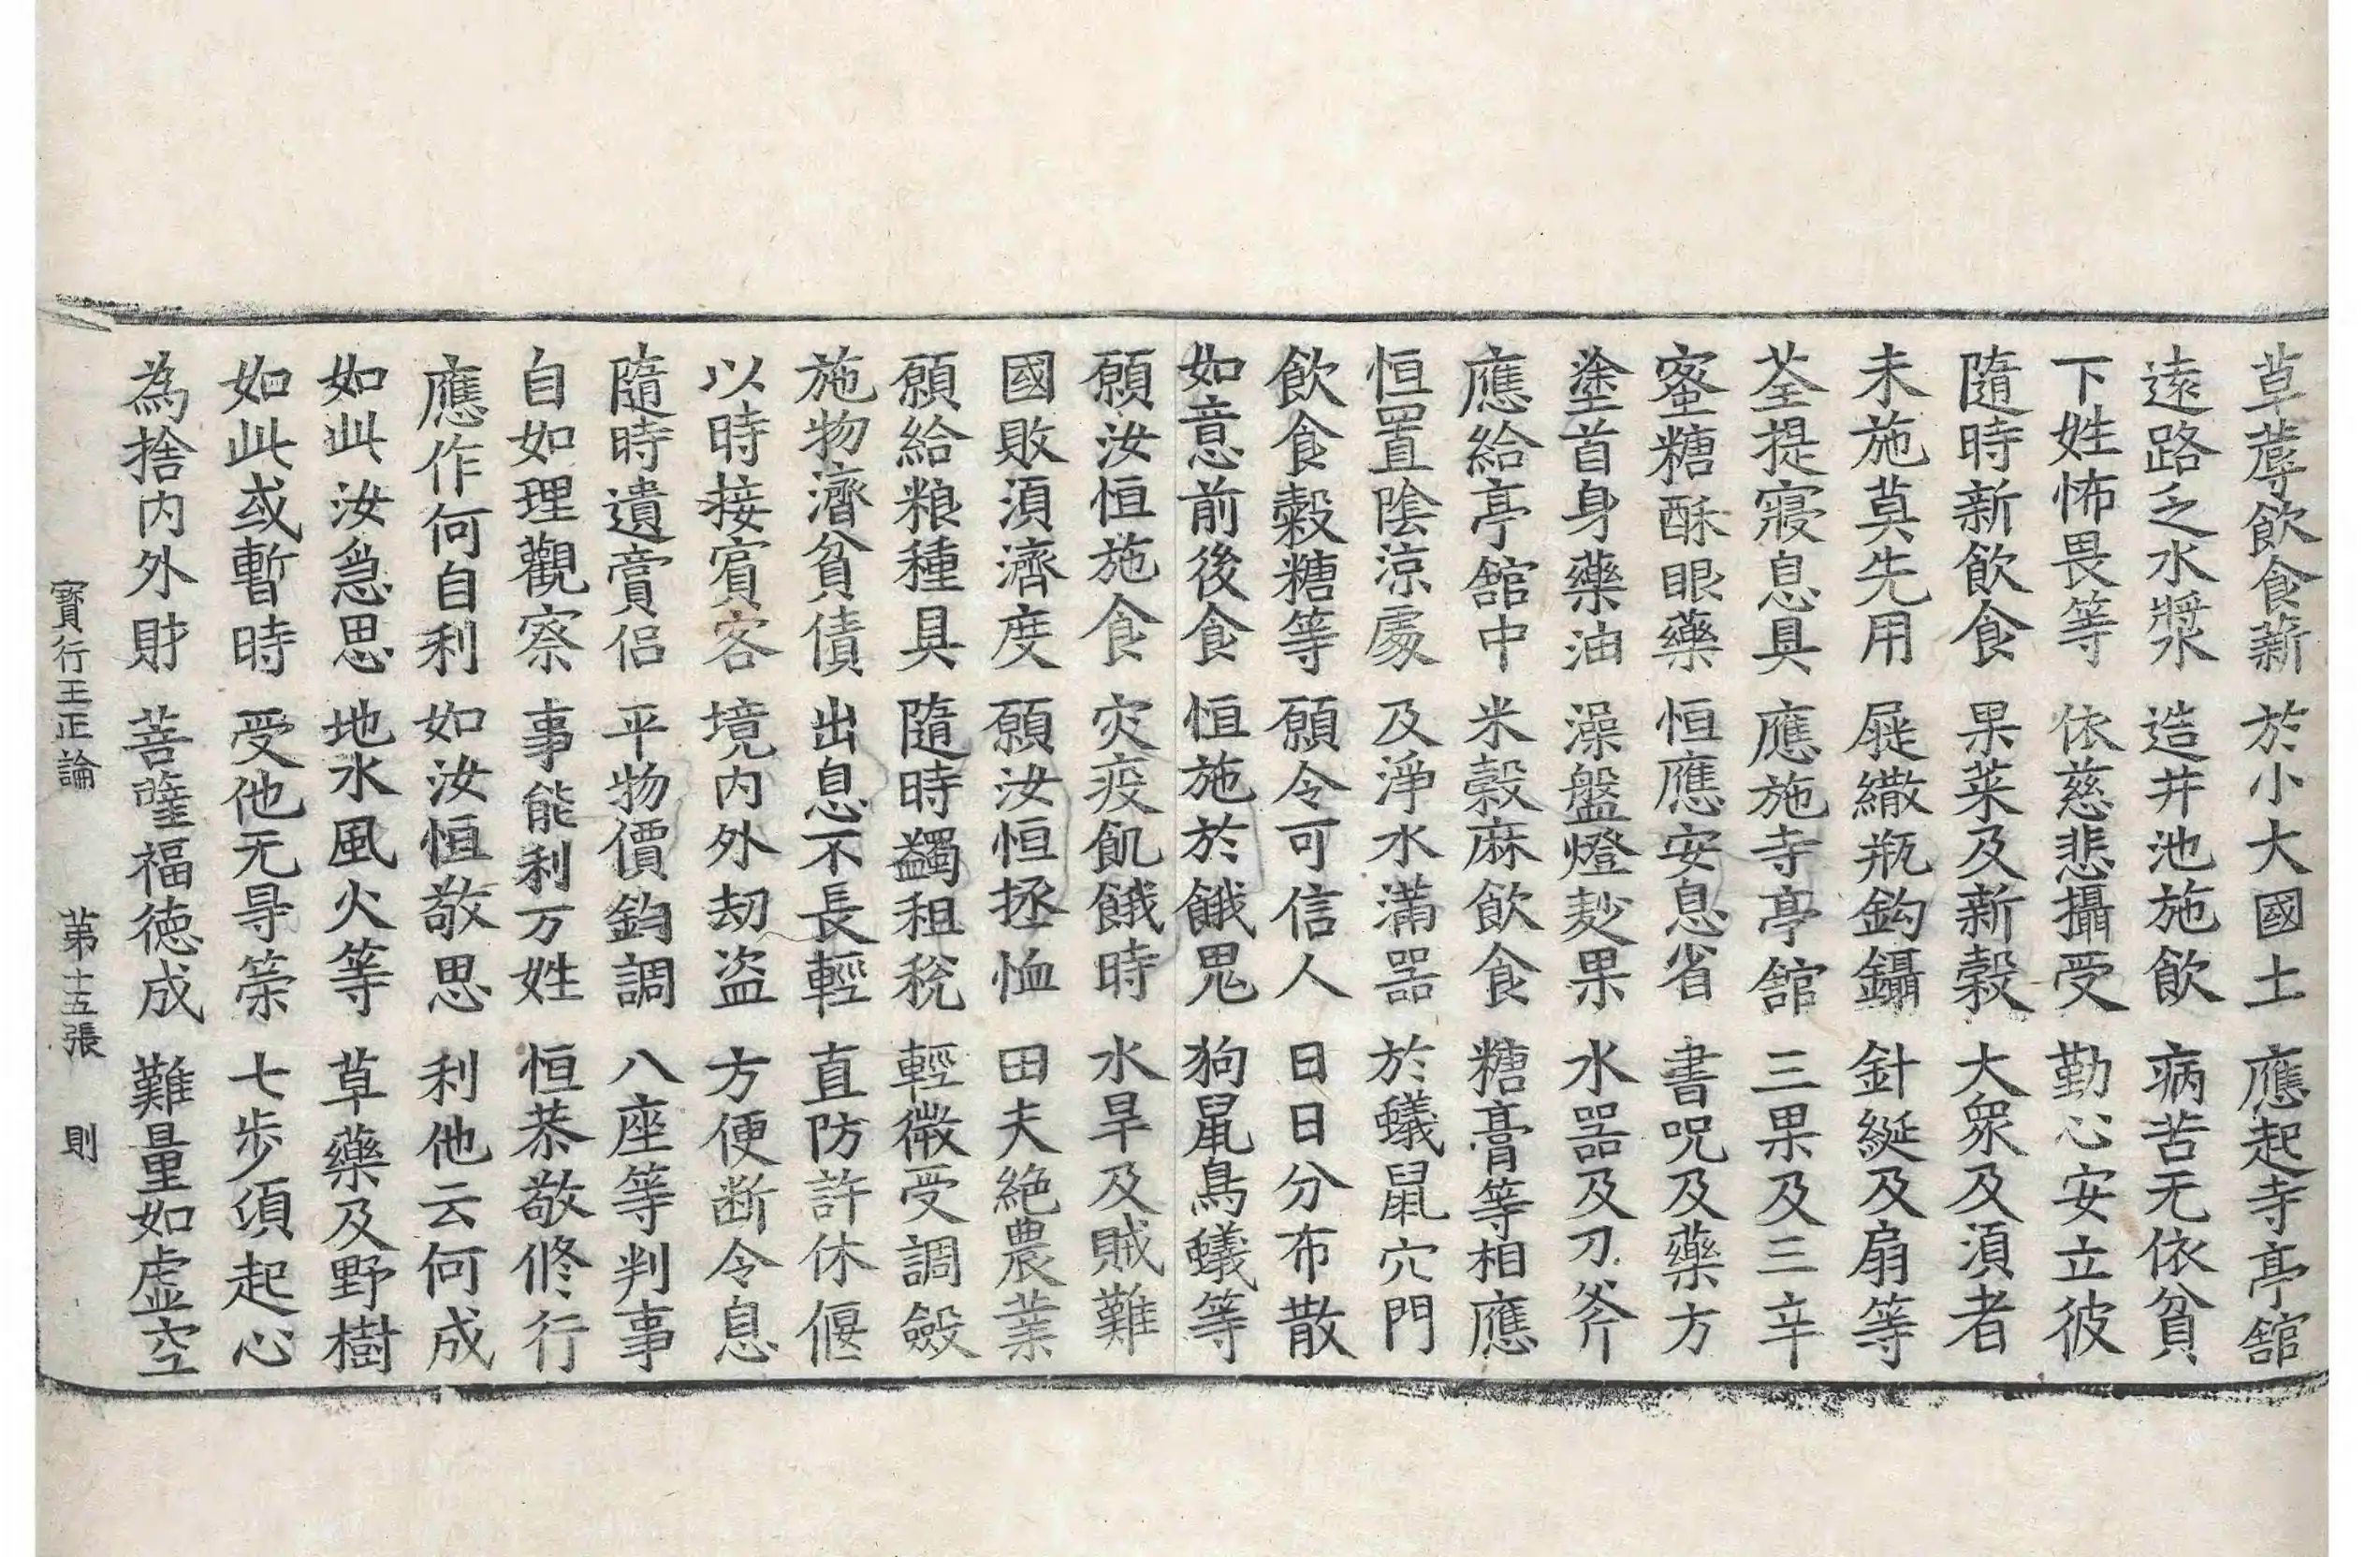 草蓐飲食薪 於小大國土 應起寺亭舘
遠路乏水漿 造井池施飲 病苦无依貧
下姓怖畏等 依慈悲攝受 勤心安立彼
隨時新飲食 果菜及新穀 大衆及湏者
未施莫先用 屣繖瓶鈎鑷 針綖及扇等
荃提寢息具 應施寺亭舘 三果及三辛
蜜糖酥眼藥 恒應安息省 書呪及藥方
塗首身藥油 澡盤燈麨果 水器及刀斧
應給亭舘中 米穀麻飲食 糖膏等相應
恒置陰涼處 及淨水滿器 於蟻鼠穴門
飲食穀糖等 願令可信人 日日分布散
如意前後食 恒施於餓鬼 狗鼠鳥蟻等
願汝恒施食 灾疫飢餓時 水旱及賊難
國敗湏濟度 願汝恒拯恤 田夫絶農業
願給粮種具 隨時蠲租稅 輕微受調斂
施物濟貧債 出息不長輕 直防許休偃
以時接賓客 境內外劫盗 方便断令息
隨時遺賣侣 平物價鈞調 八座等判事
自如理觀察 事能利万姓 恒恭敬修行
應作何自利 如汝恒敬思 利他云何成
如此汝急思 地水風火等 草藥及野樹
如此或暫時 受他无㝵榮 七步須起心
為捨内外財 菩薩福徳成 難量如虚空
寶行王正論 第十五張 則